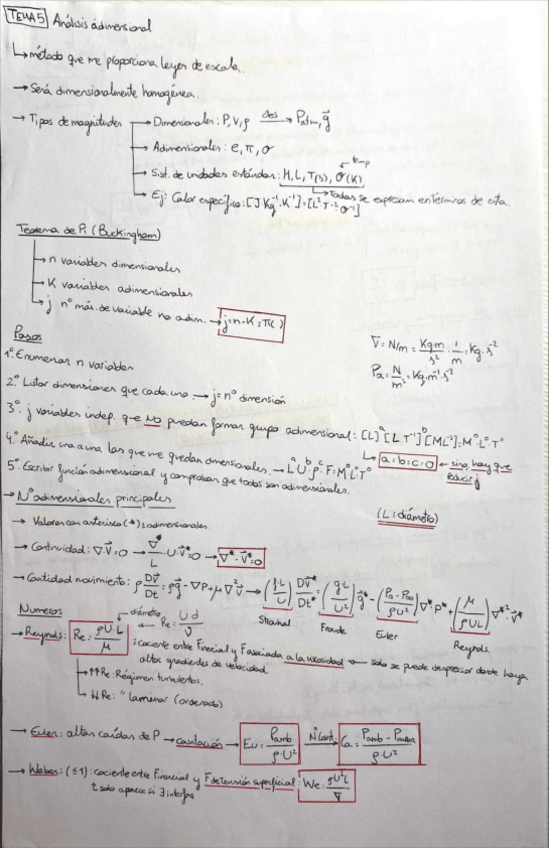 TEMA 5 Análisis adimensional
↳ método que me proporciona leyes de escala.
→ Será dimensionalmente homogénea.
→ Tipos de magnitudes → Dimensionales: P, V, ρ des→ Patm, g⃗
→ Adimensionales: e, π, σ
→ Sist. de unidades estándar: M, L, T(s), Θ(K)
temp
↳ Todas se expresan en términos de esta.
→ Ej: Calor específico: [J·Kg⁻¹·K⁻¹] = [L²T⁻²Θ⁻¹]
Teorema de Pi (Buckingham)
→ n variables dimensionales
→ K variables adimensionales
↳ j nº máx. de variable no adim. → j = n-K = π( )
Pasos
∇ = N/m = Kg·m/s² · 1/m = Kg·s⁻²
Pa = N/m² = Kg·m⁻¹·s⁻²
1º Enumerar n variables
2º Listar dimensiones que cada una → j = nº dimensión
3º j variables indep. que NO puedan formar grupo adimensional: [L]ᵃ[LT⁻¹]ᵇ[ML⁻³]ᶜ = M⁰L⁰T⁰
↳ a=b=c=0 ← sino, hay que reducir j
4º Añadir una a una las que me quedan dimensionales. → Lᵃ Uᵇ ρᶜ F = M⁰L⁰T⁰
5º Escribir función adimensional y comprobar que todos son adimensionales.
→ Nº adimensionales principales
→ Valores con asterisco (*) = adimensionales
(L = diámetro)
→ Continuidad: ∇·V⃗=0 → ∇*/L · U·V⃗*=0 → ∇*·V⃗*=0
→ Cantidad movimiento: ρ DV⃗/Dt = ρg⃗ - ∇P + μ∇²v⃗ → (f·L/U) DV⃗*/Dt* = (g·L/U²) g⃗* - (P₀-P∞/ρU²) ∇*·P* + (μ/ρUL) ∇*²·V⃗*
Strouhal Froude Euler Reynolds
Numeros
→ Reynolds: Re = ρU·L/μ ← diámetro Re = U d/ν
= cociente entre F inercial y F asociada a la viscosidad ← solo se puede despreciar donde haya
altos gradientes de velocidad.
→ ↑↑Re: Régimen turbulento.
↳ ↓↓Re: " laminar (ordenado)
→ Euler: altas caídas de P → cavitación → Eu = Pamb/ρ·U² Nº cavit. → Ca = Pamb - Pvapor/ρ·U²
→ Weber: (≤1): cociente entre F inercial y F de tensión superficial: We = ρU²L/∇
↳ solo aparece si ∃ interfase